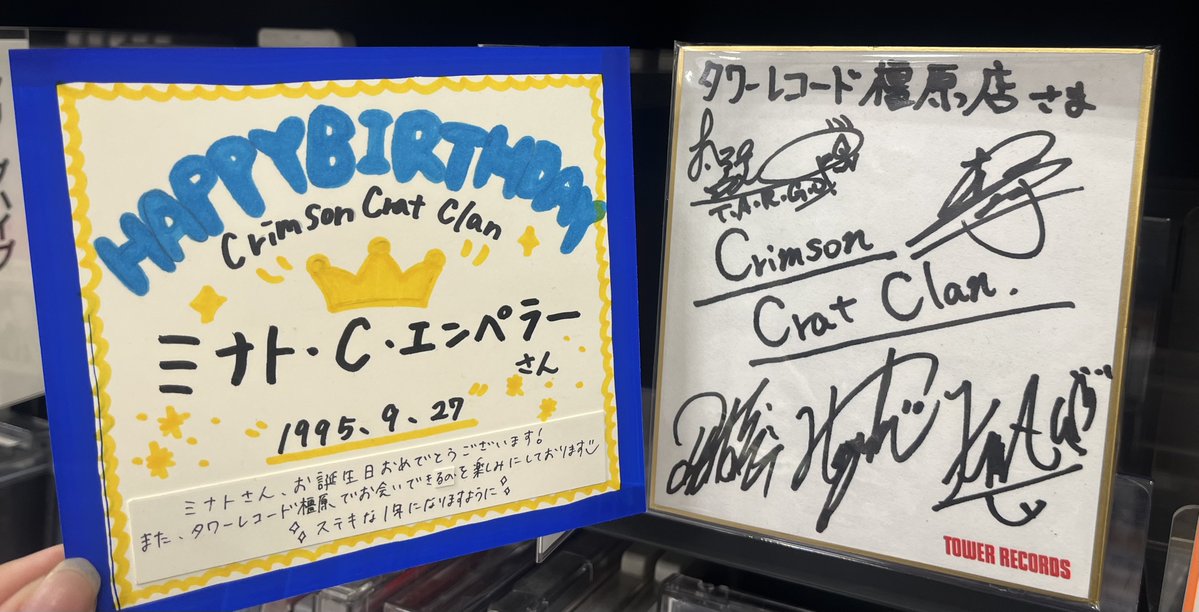 HAPPY BIRTHDAY
Crimson Crat Clan
ミナト・C・エンペラー
さん
1995. 9. 27
ミナトさん、お誕生日おめでとうございます!
また、タワーレコード橿原でお会いできるのを楽しみにしております
ステキな1年になりますように
タワーレコード橿原店さま
T.A.R.G.E.T
Crimson
Crat Clan.
TOWER RECORDS